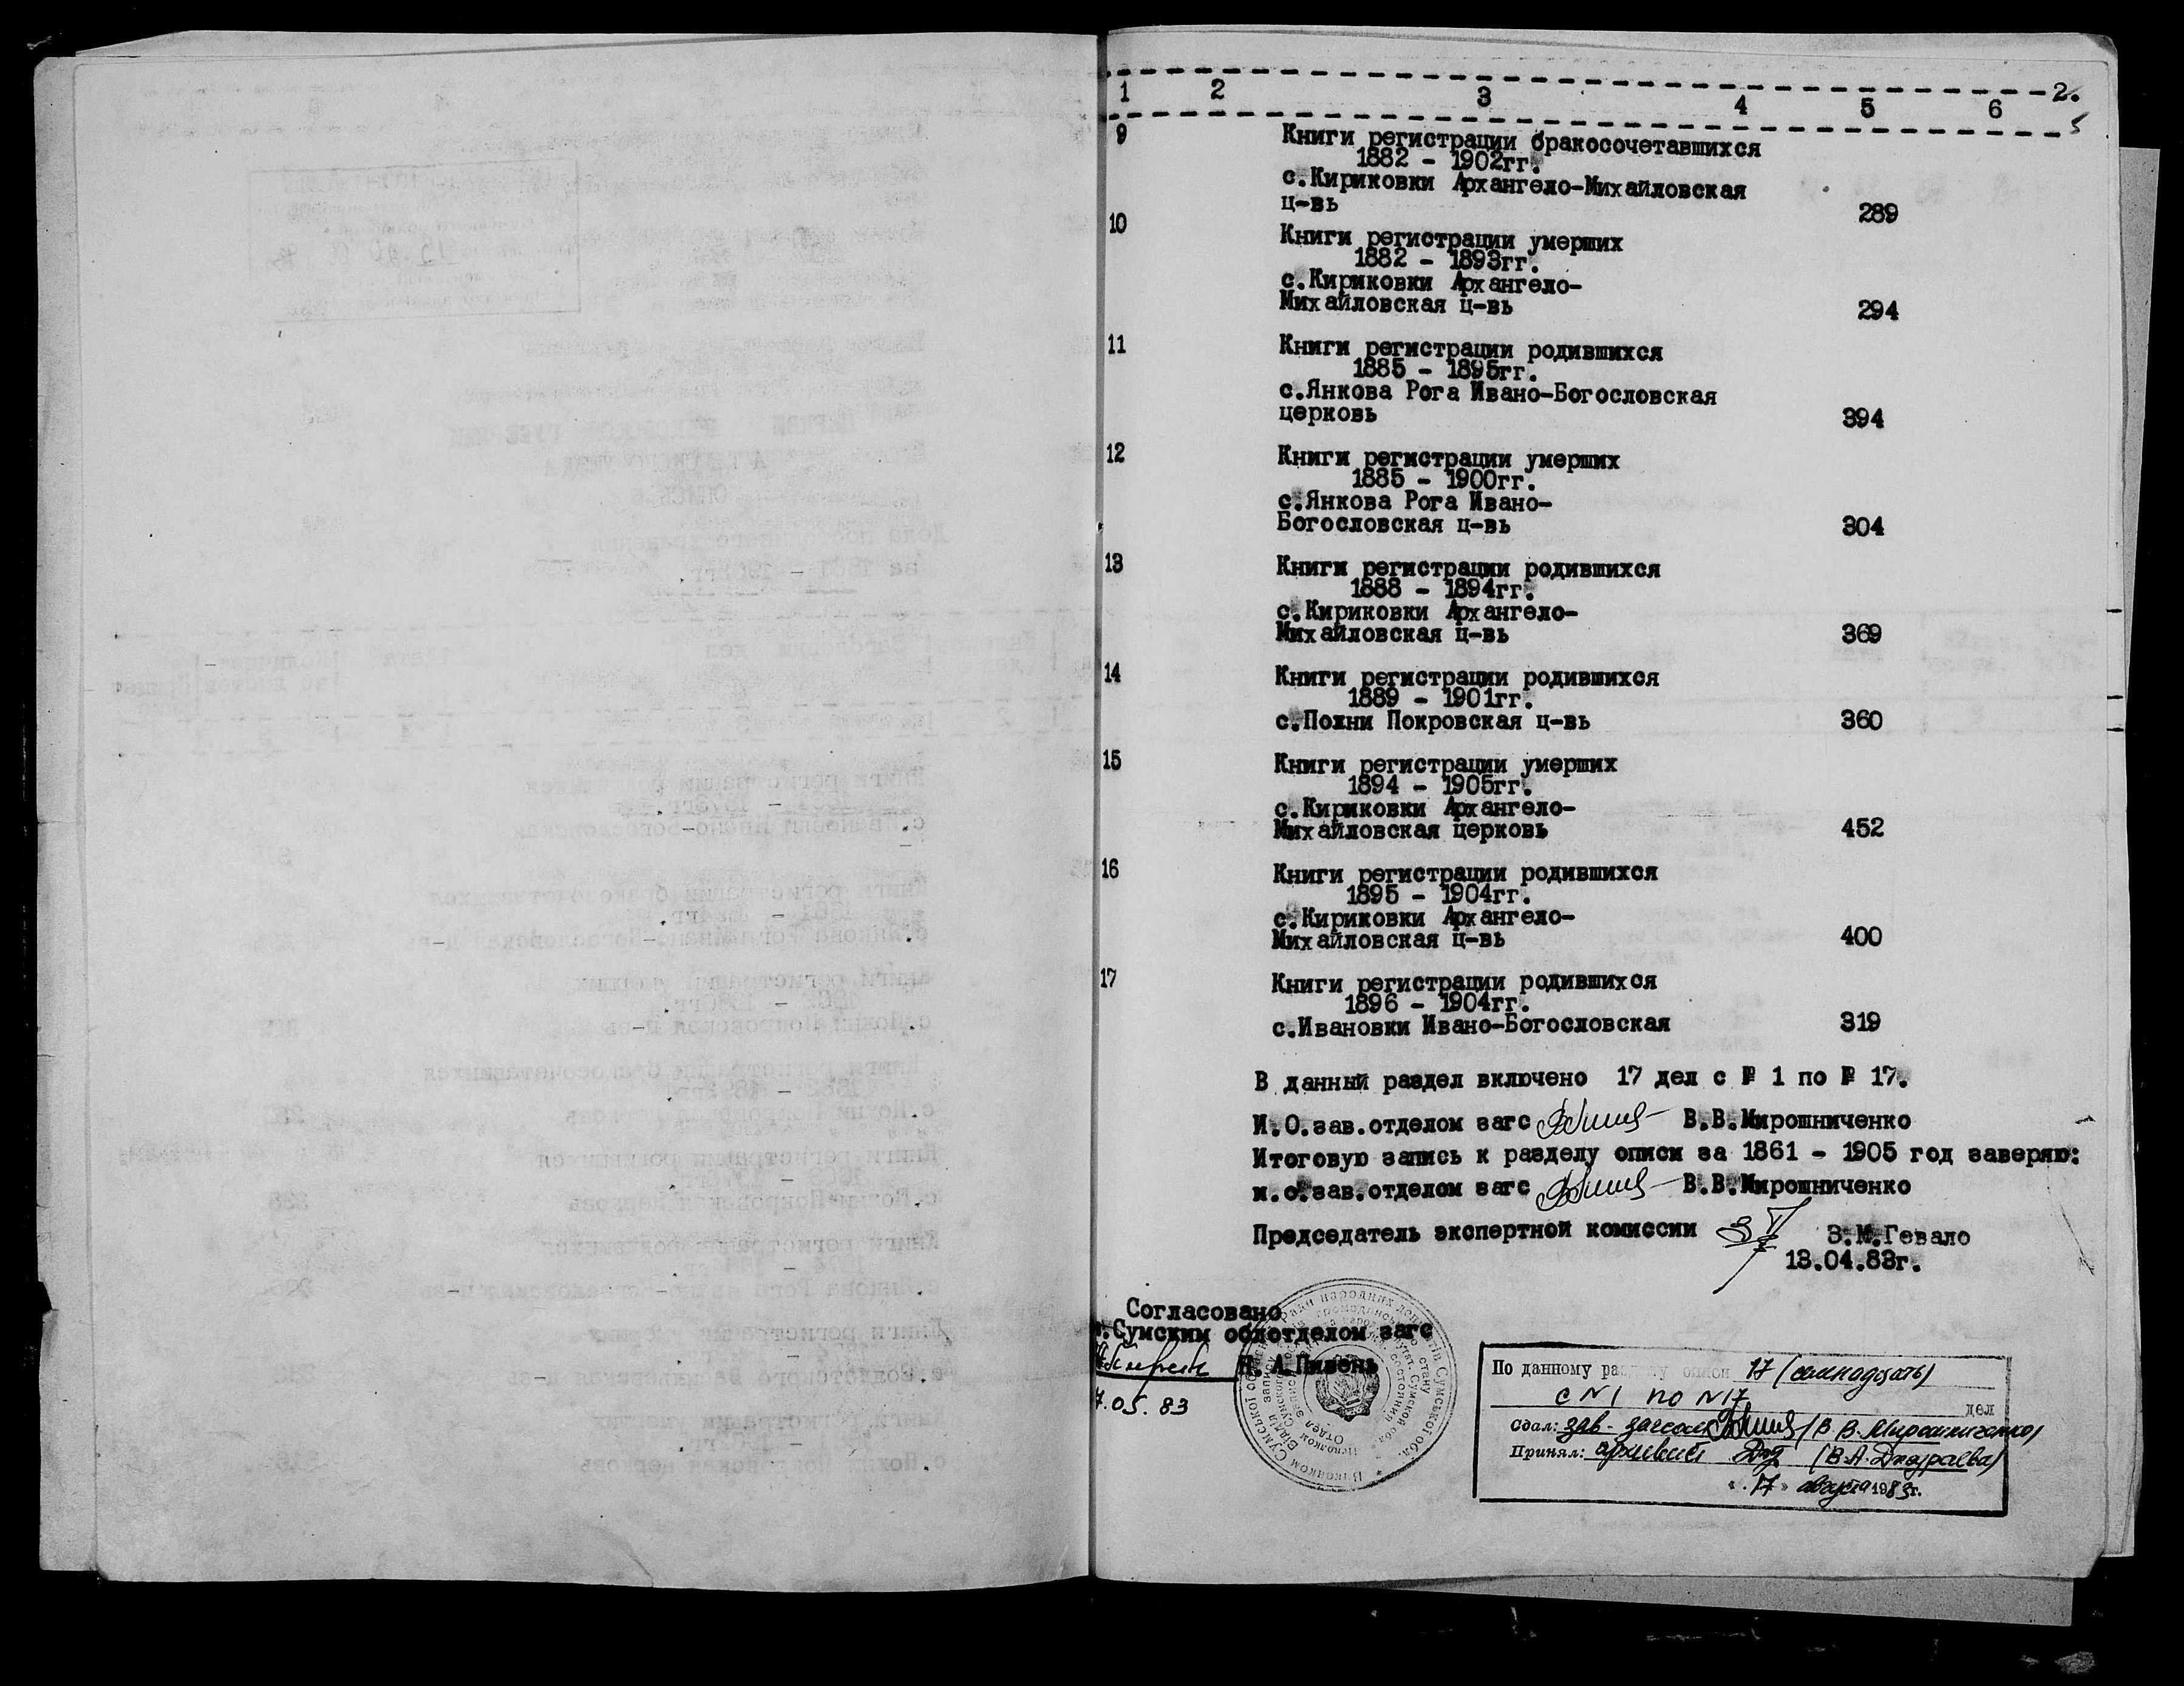 2.
1 2 3 4 5 6
9 Книги регистрации бракосочетавшихся
1882 - 1902гг.
с.Кириковки Архангело-Михайловская
ц-вь 289
10 Книги регистрации умерших
1882 - 1893гг.
с.Кириковки Архангело-
Михайловская ц-вь 294
11 Книги регистрации родившихся
1885 - 1895гг.
с.Янкова Рога Ивано-Богословская
церковь 394
12 Книги регистрации умерших
1885 - 1900гг.
с.Янкова Рога Ивано-
Богословская ц-вь 304
13 Книги регистрации родившихся
1888 - 1894гг.
с.Кириковки Архангело-
Михайловская ц-вь 369
14 Книги регистрации родившихся
1889 - 1901гг.
с.Пожни Покровская ц-вь 360
15 Книги регистрации умерших
1894 - 1905гг.
с.Кириковки Архангело-
Михайловская церковь 452
16 Книги регистрации родившихся
1895 - 1904гг.
с.Кириковки Архангело-
Михайловская ц-вь 400
17 Книги регистрации родившихся
1896 - 1904гг.
с.Ивановки Ивано-Богословская 319
В данный раздел включено 17 дел с № 1 по № 17.
И.О.зав.отделом загс В.В.Мирошниченко
Итоговую запись к разделу описи за 1861 - 1905 год заверяю:
и.о.зав.отделом загс В.В.Мирошниченко
Председатель экспертной комиссии З.М.Гевало
13.04.83г.
Согласовано
Сумским облотделом загс
Н.А.Пивень
7.05.83
По данному разделу описи 17 (семнадцать)
с N 1 по N 17 дел
Сдал: зав. загсом (В.В. Мирошниченко)
Принял: архивист (В.А. Джураева)
"17" августа 1983г.